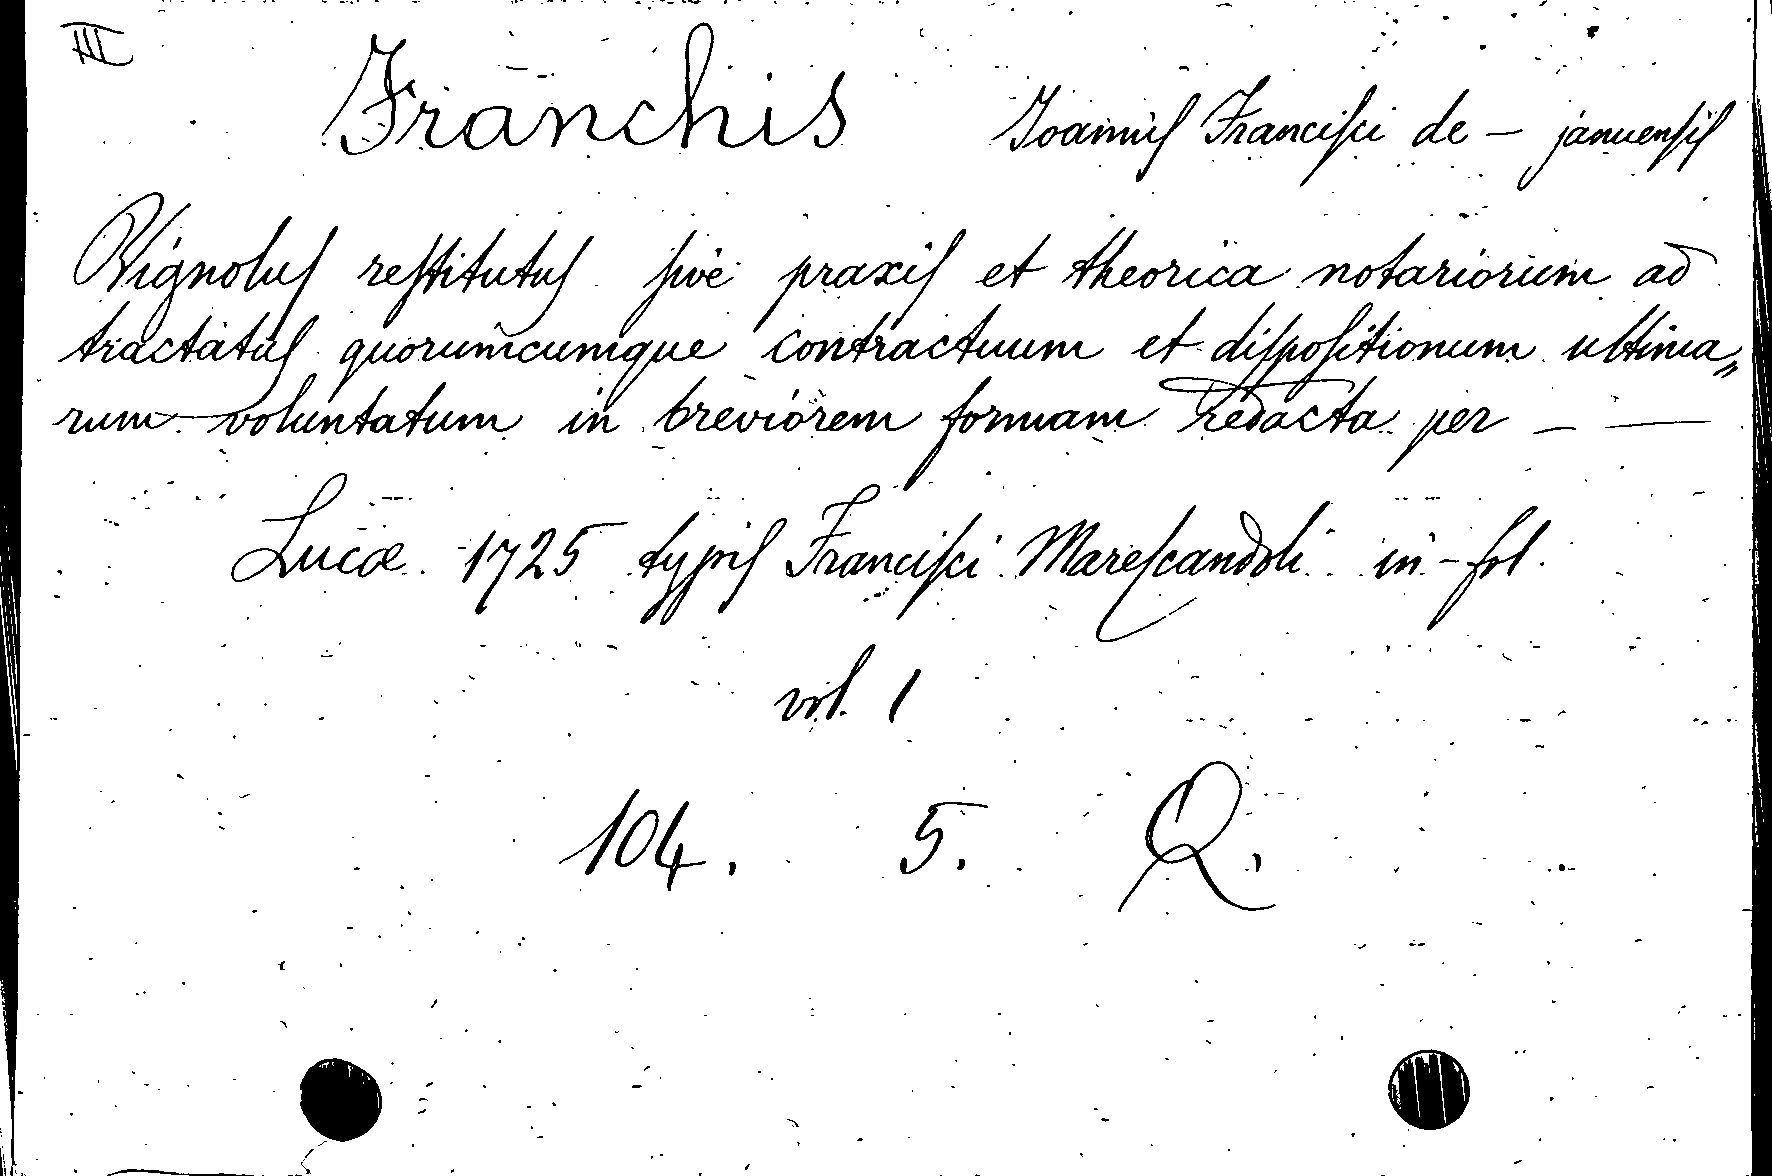 III
Franchis Joannis Francisci de — januensis
Vignolus restitutus sive praxis et theorica notariorum ad
tractatus quorumcumque contractuum et dispositionum ultima„
rum voluntatum in breviorem formam redacta per — —
Lucæ 1725 typis Francisci Marescandoli in-fol.
vol. 1
104. 5. Q.